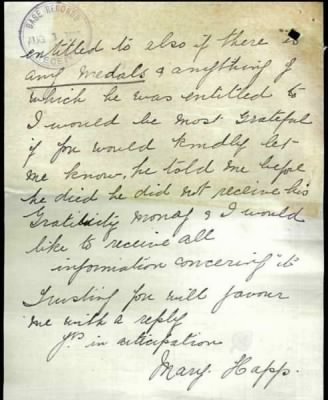 BASE RECORDS
entitled to also if there is
any medals & anything of
which he was entitled to
I would be most Grateful
if you would kindly let
me know, he told me before
he died he did not receive his
Gratituity money & I would
like to receive all
information concering it
Trusting you will favour
me with a reply
yrs in aticipation
Mary. Happ.